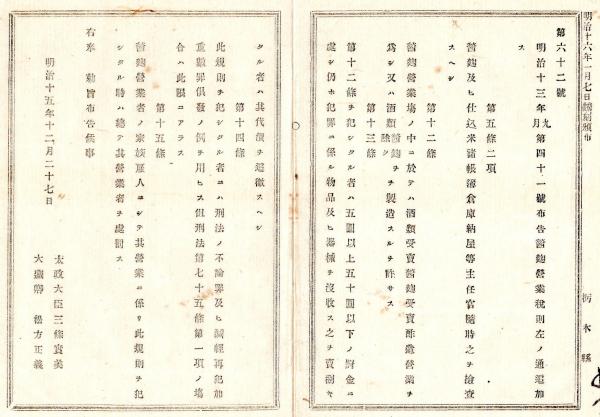 明治十六年一月七日飜刻頒布
栃木縣
第六十二號
明治十三年九月第四十一號布告醤麹營業税則左ノ通追加
ス
第五條二項
醤麹及ヒ仕込米諸帳簿倉庫納屋等主任官隨時之ヲ檢査
スヘシ
第十二條
醤麹營業場ノ中ニ於テハ酒類受賣醤麹受賣酢釀營業ヲ
爲シ又ハ酒類醤麹ヲ除クヲ製造スルヲ許サス
第十三條
第十二條ヲ犯シタル者ハ五圓以上五十圓以下ノ罸金ニ
處シ仍ホ犯罪ニ係ル物品及ヒ器械ヲ沒收ス之ヲ賣捌キ
タル者ハ其代價ヲ追徴スヘシ
第十四條
此規則ヲ犯シタル者ニハ刑法ノ不論罪及ヒ減輕再犯加
重數罪倶發ノ例ヲ用ヒス但刑法第七十五條第一項ノ塲
合ハ此限ニアラス
第十五條
醤麹營業者ノ家族雇人ニシテ其營業ニ係リ此規則ヲ犯
シタル時ハ總テ其營業者ヲ處罰ス
右奉 勅旨布告候事
明治十五年十二月二十七日
太政大臣三條實美
大藏卿 松方正義